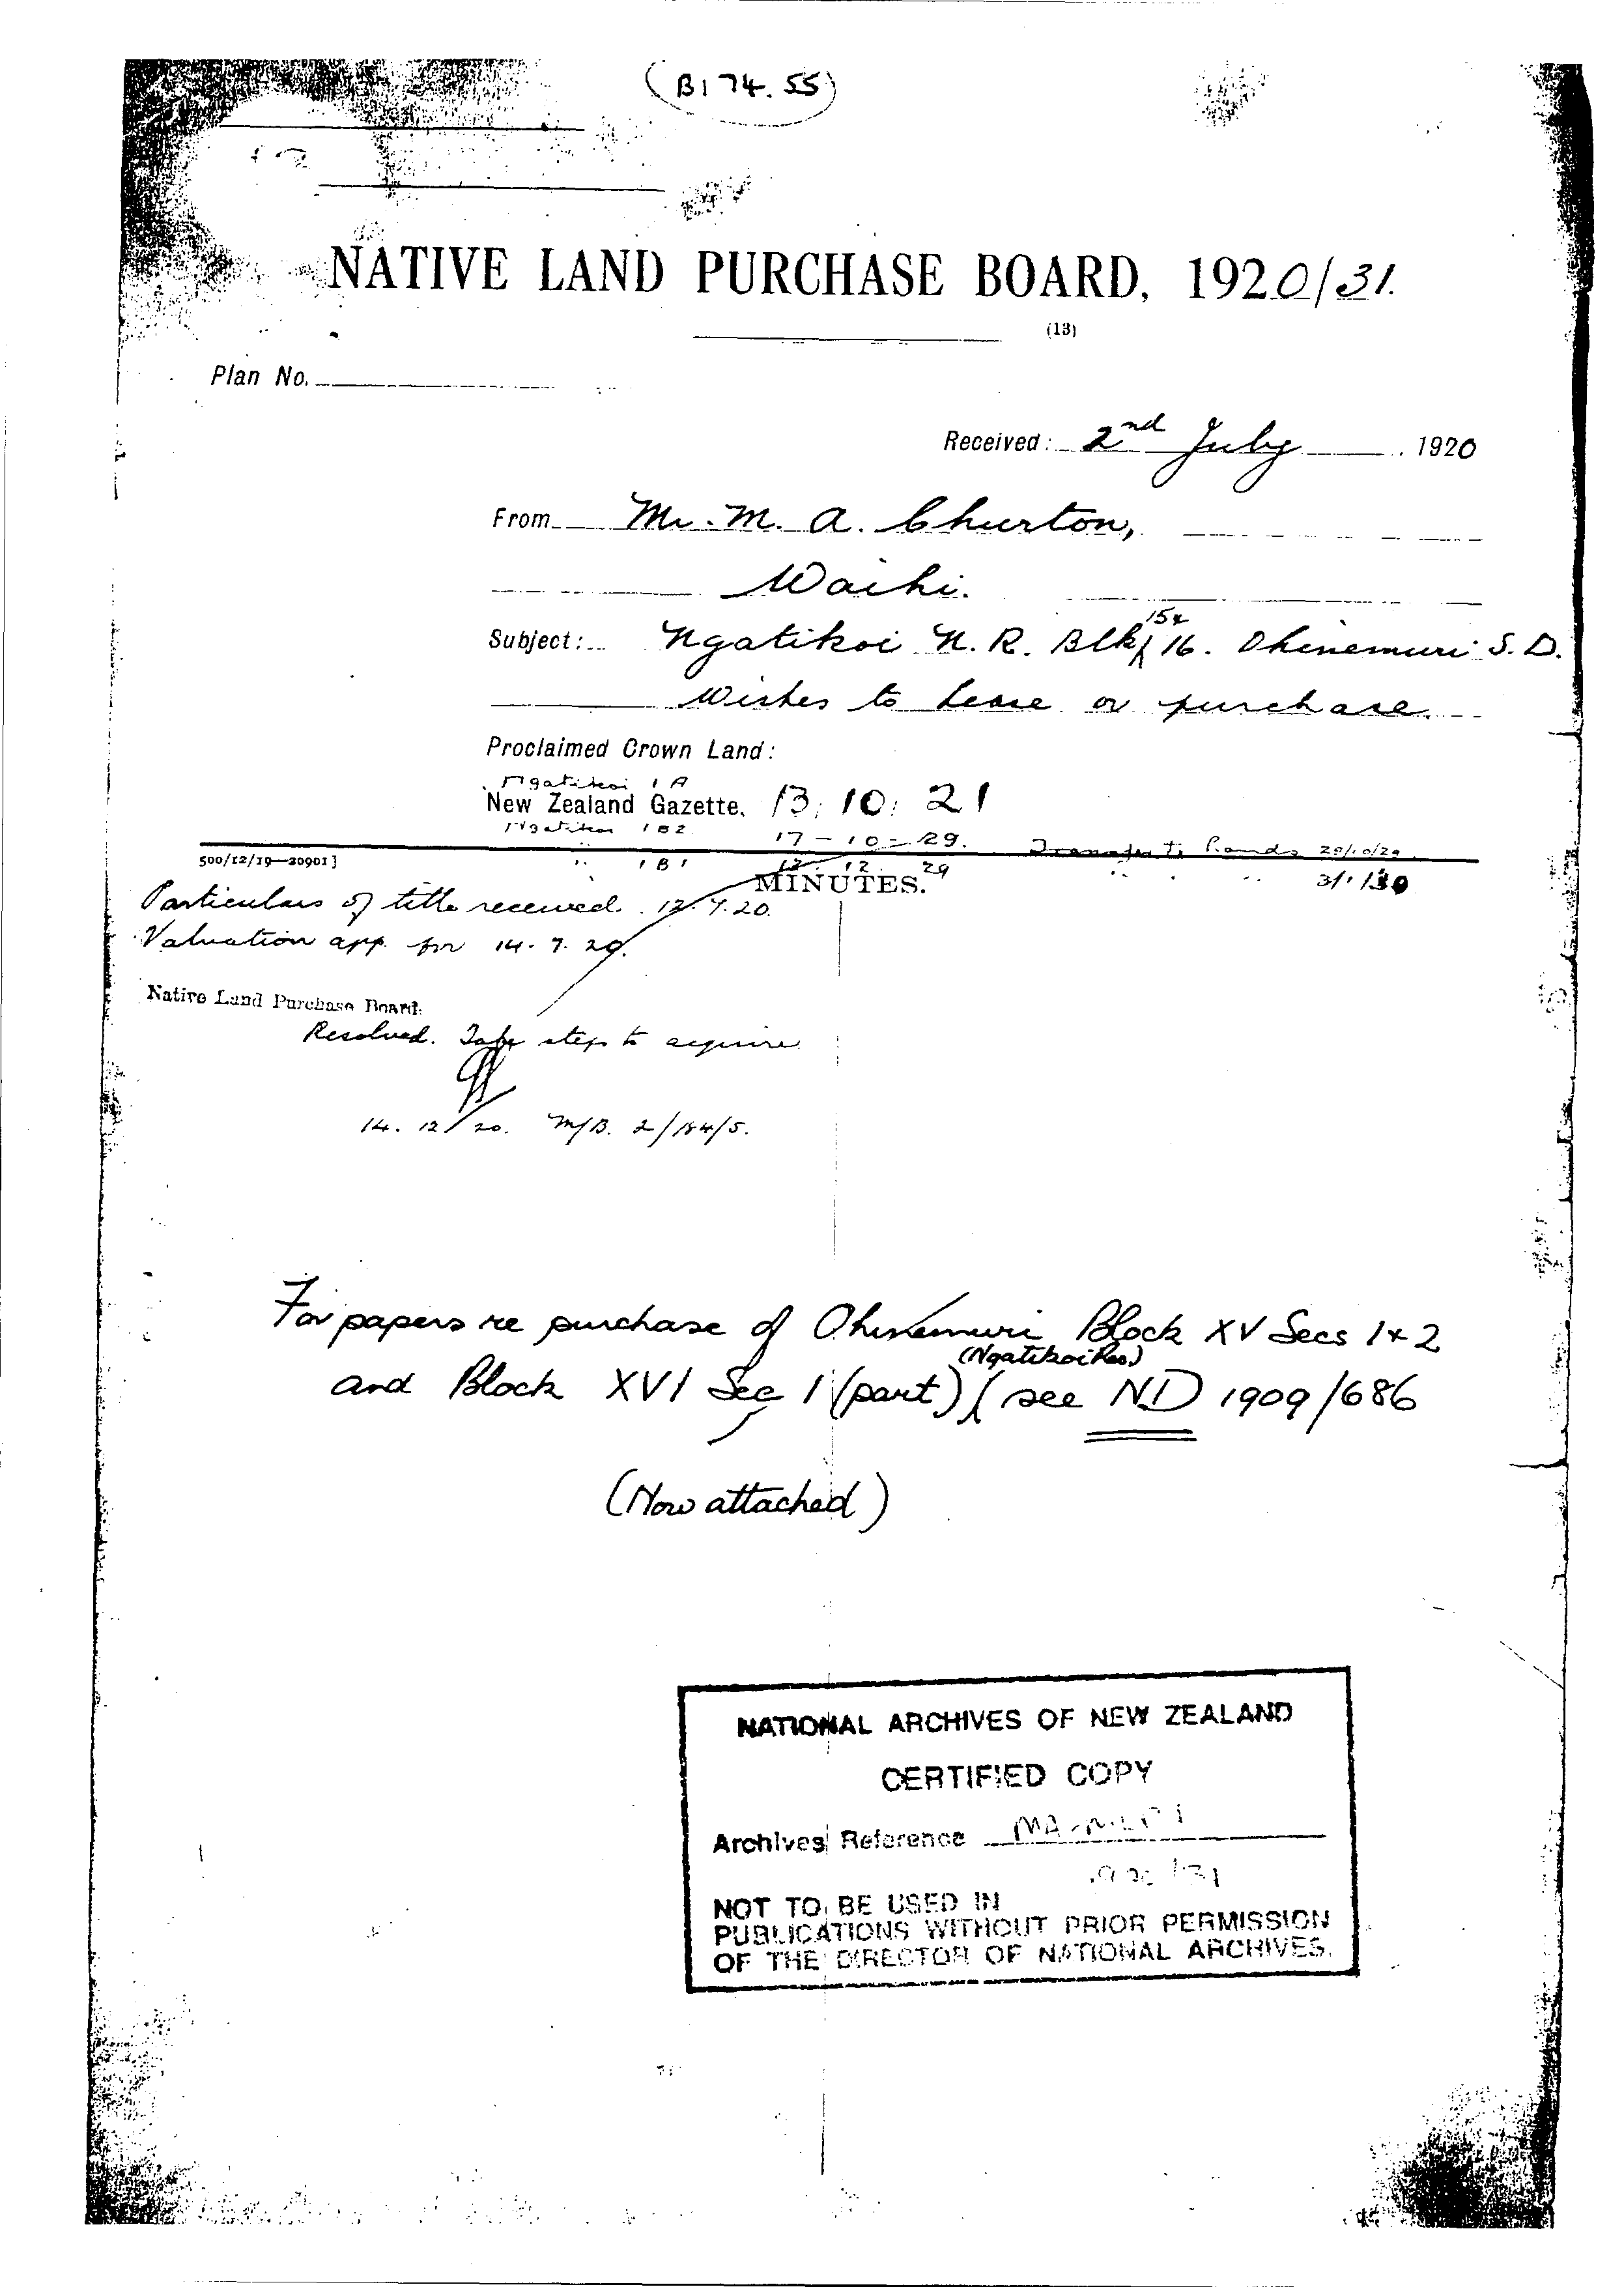 (B174.55)
NATIVE LAND PURCHASE BOARD, 1920/31.
(13)
Plan No.
Received: 2nd July 1920
From Mr. M. A. Churton,
Waihi.
15 &
Subject: Ngatikoi N. R. Blk 16. Ohinemuri S. D.
Wishes to lease or purchase.
Proclaimed Crown Land:
Ngatikoi 1A
New Zealand Gazette, 13:10:21
Ngatikoi 1B2 17-10-29. Transfer to Lands 29/10/29
500/12/19—20901] " 1B1 12 12 29 " " "
MINUTES. 31/1/30
Particulars of title received. 12.7.20.
Valuation app. for 14.7.20.
Native Land Purchase Board.
Resolved. Take steps to acquire
14.12/20. M/B. 2/184/5.
For papers re purchase of Ohinemuri Block XV Secs 1 & 2
(Ngatikoi Res)
and Block XVI Sec 1 (part) (see ND 1909/686
(Now attached)
NATIONAL ARCHIVES OF NEW ZEALAND
CERTIFIED COPY
Archives Reference MA-MLP 1
1920/31
NOT TO BE USED IN
PUBLICATIONS WITHOUT PRIOR PERMISSION
OF THE DIRECTOR OF NATIONAL ARCHIVES.